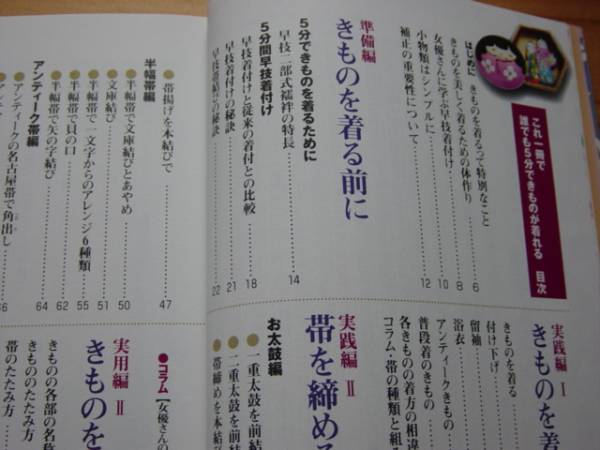 これ一冊で
誰でも5分できものが着れる 目次
はじめに きものを着るって特別なこと 6
きものを美しく着るための体作り 8
女優さんに学ぶ早技着付け 10
小物類はシンプルに 12
補正の重要性について
準備編
きものを着る前に
5分できものを着るために
早技二部式襦袢の特長 14
5分間早技着付け
早技着付けと従来の着付との比較 18
早技着付けの秘訣 21
早技帯結びの秘訣 22
実践編 Ⅰ
きものを着
きものを着る
付け下げ
留袖
浴衣
アンティークきもの
普段着のきもの
各きものの着方の相違
コラム・帯の種類と組
実践編 Ⅱ
帯を締め
お太鼓編
一重太鼓を前結
二重太鼓を前結
帯締めを本結び
帯揚げを本結びで 47
半幅帯編
半幅帯で文庫結びとあやめ 50
文庫結び 51
半幅帯で一文字からのアレンジ6種類 55
半幅帯で貝の口 62
半幅帯で矢の字結び 64
アンティーク帯編
アンティークの名古屋帯で角出し 66
コラム【女優さんの
実用編 Ⅱ
きものを
きもの各部の名称
きもののたたみ方
帯のたたみ方